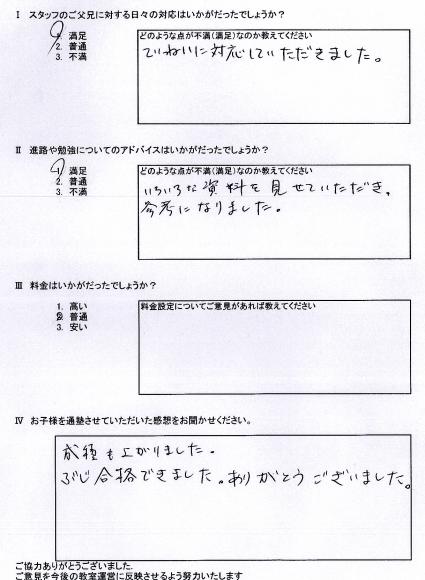 Ⅰ スタッフのご父兄に対する日々の対応はいかがだったでしょうか？
1. 満足
2. 普通
3. 不満
どのような点が不満(満足)なのか教えてください
ていねいに対応していただきました。
Ⅱ 進路や勉強についてのアドバイスはいかがだったでしょうか？
1. 満足
2. 普通
3. 不満
どのような点が不満(満足)なのか教えてください
いろいろな資料を見せていただき、
参考になりました。
Ⅲ 料金はいかがだったでしょうか？
1. 高い
2. 普通
3. 安い
料金設定についてご意見があれば教えてください
Ⅳ お子様を通塾させていただいた感想をお聞かせください。
成績も上がりました。
ぶじ合格できました。ありがとうございました。
ご協力ありがとうございました。
ご意見を今後の教室運営に反映させるよう努力いたします